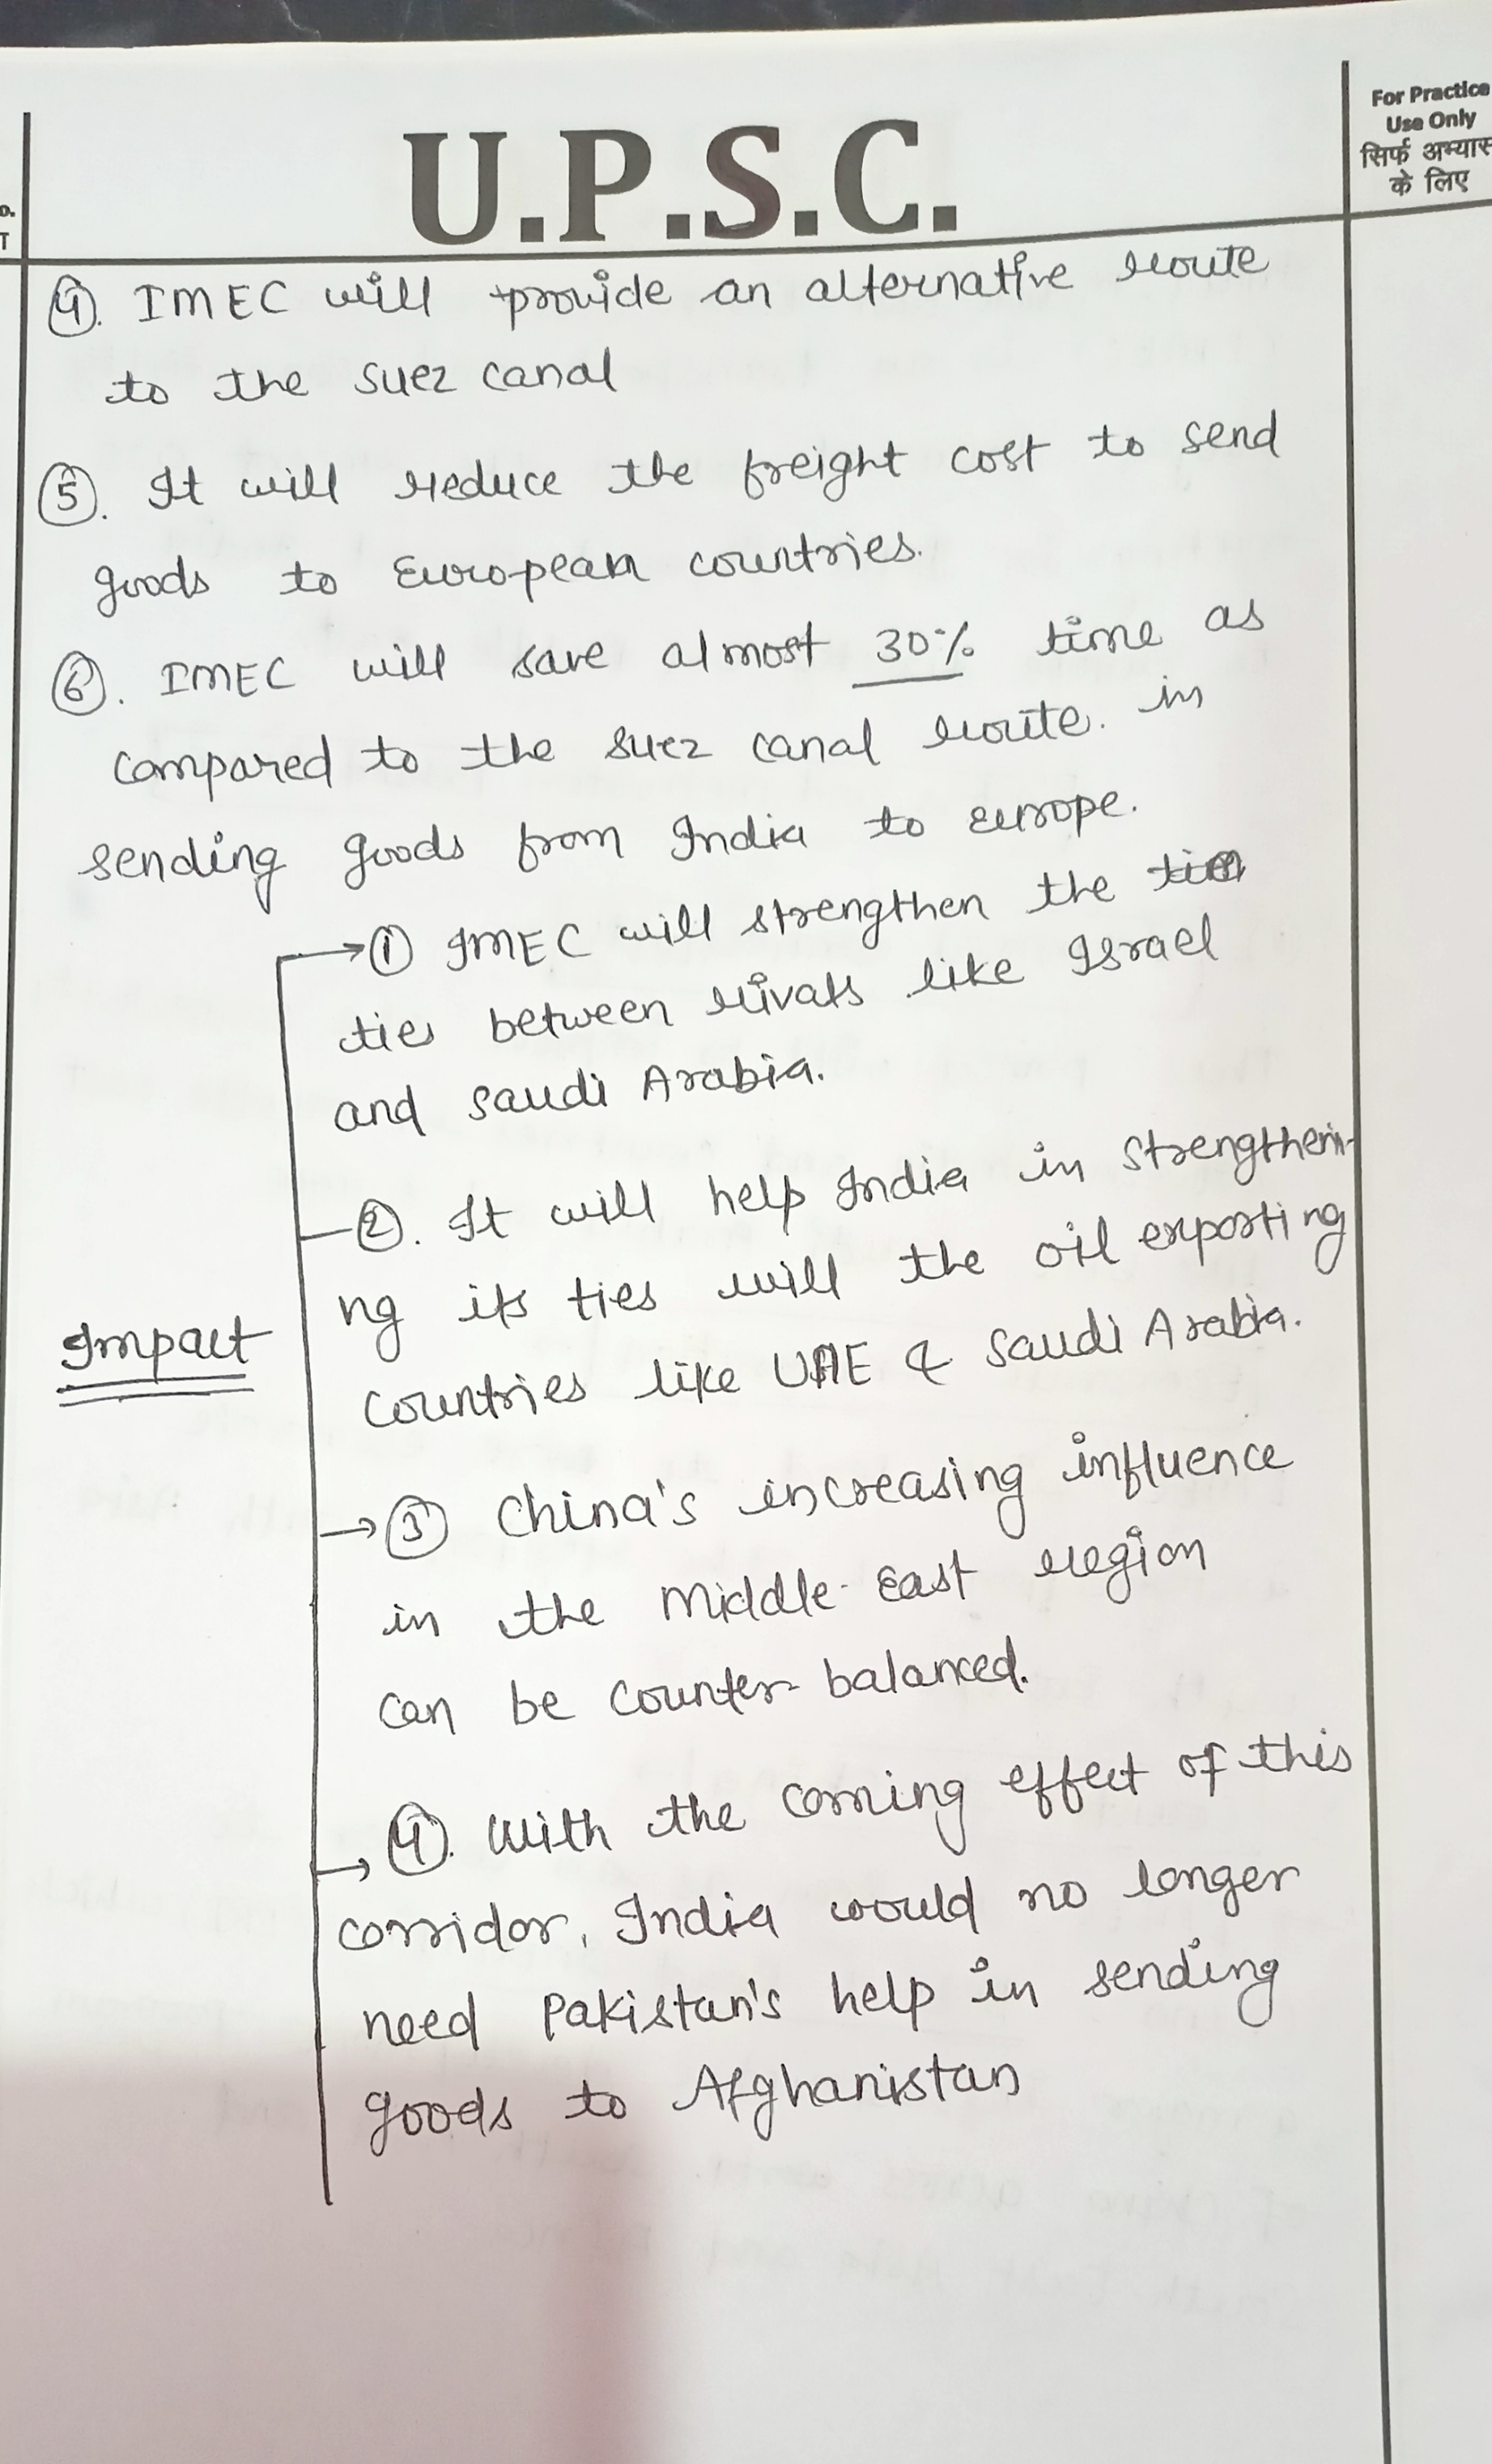 For Practice
Use Only
सिर्फ अभ्यास
के लिए
U.P.S.C.
4. IMEC will provide an alternative route
to the suez canal
5. It will reduce the freight cost to send
goods to European countries.
6. IMEC will save almost 30% time as
compared to the suez canal route. in
sending goods from India to europe.
→ 1 IMEC will strengthen the
ties between rivals like Israel
and saudi Arabia.
2. It will help India in strengtheni-
ng its ties will the oil exporting
Impact
countries like UAE & saudi Arabia.
→ 3 China's increasing influence
in the Middle-East region
can be counter-balanced.
→ 4. With the coming effect of this
corridor, India would no longer
need Pakistan's help in sending
goods to Afghanistan